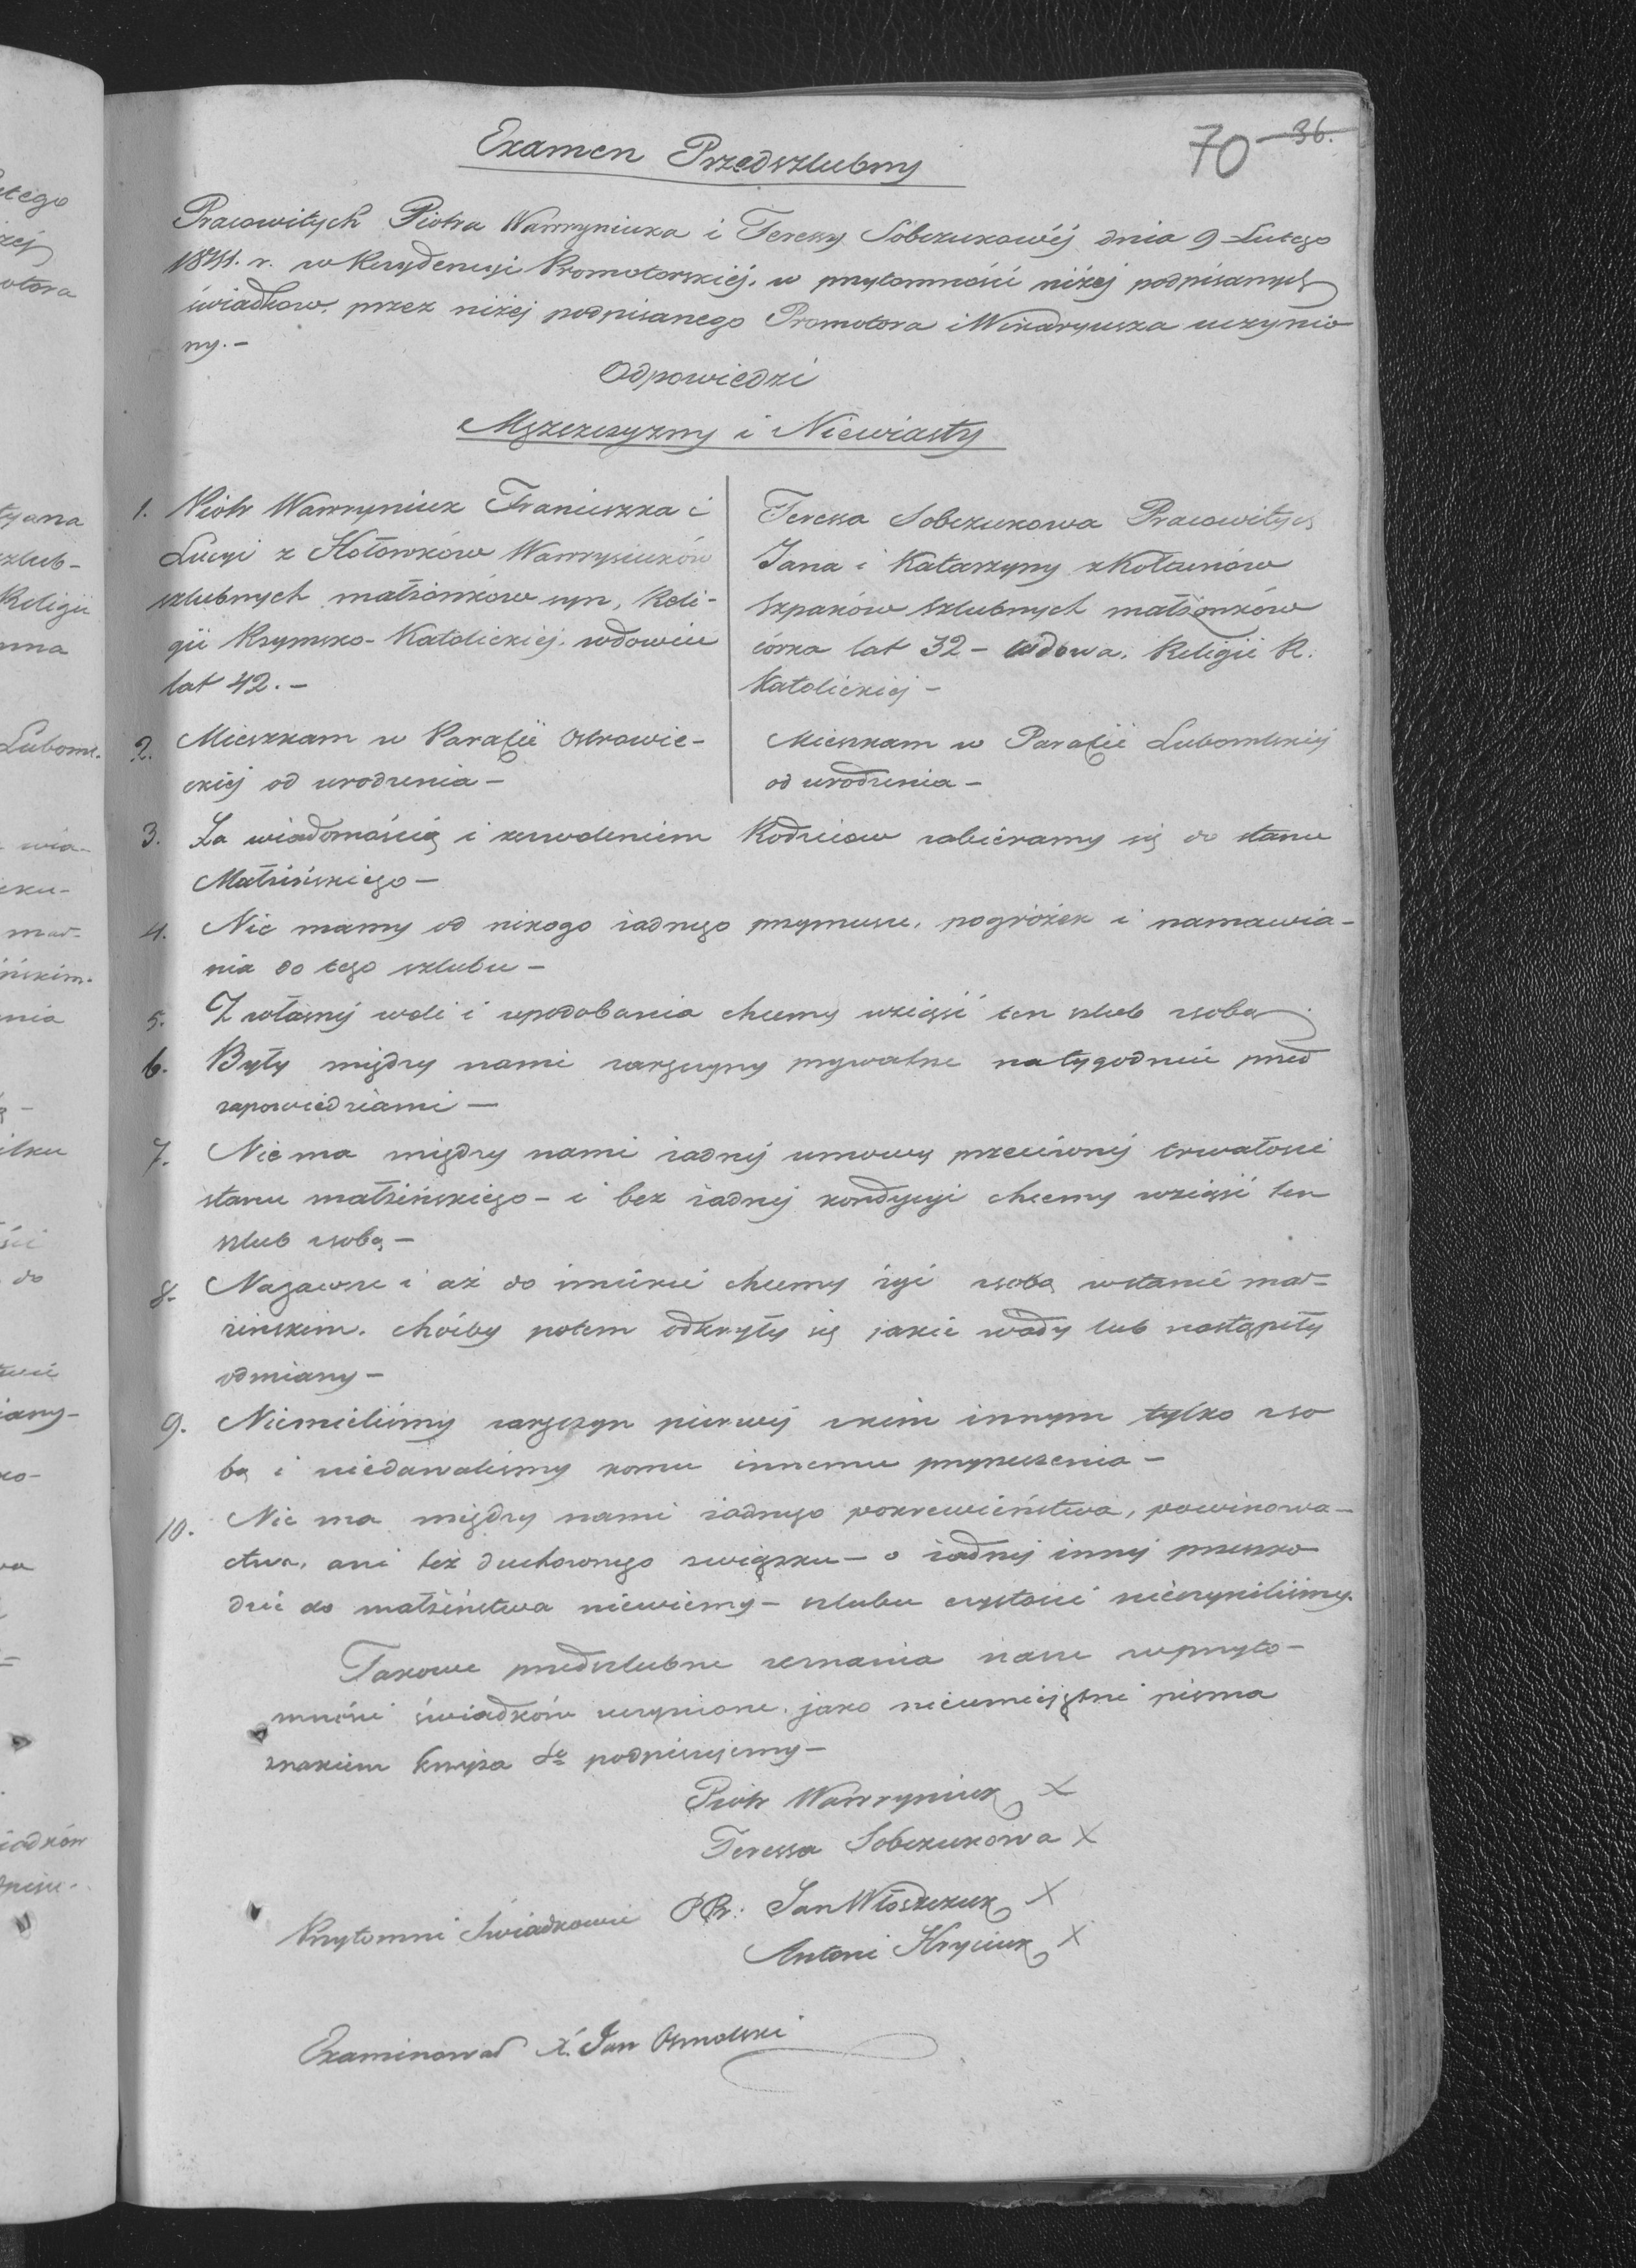 Examen Przedszlubny
70 36.
Pracowitych Piotra Wawryniuka i Teressy Sobczukowéj dnia 9 Lutego
1841. r. w Rezydencyi Promotorskiéj, w przytomności niżéj podpisanych
świadkow, przez niżéj podpisanego Promotora i Wikaryusza uczynio
ny. -
Odpowiedzi
Męzczyzny i Niewiasty
1. Piotr Wawryniuk Franciszka i
Lucyi z Hołowków Wawrysiuków
szlubnych małżonkow syn, Reli-
gii Rzymsko-Katolickiéj. wdowiec
lat 42. -
Teressa Sobczukowa Pracowitych
Jana i Katarzyny z Kołtunów
Szpaków szlubnych małżonków
córka lat 32 - wdowa. Religii R.
Katolickiej -
2. Mieszkam w Parafii Ostrowie-
ckiéj od urodzenia -
Mieszkam w Parafii Lubomlskiej
od urodzenia -
3. Za wiadomością i zezwoleniem Rodzicow zabieramy się do stanu
Małżeńskiego -
4. Nie mamy od nikogo żadnego przymusu, pogróżek i namawia-
nia do tego szlubu -
5. Z własnéj woli i upodobania chcemy wziąść ten szlub z sobą
6. Były między nami zaręczyny prywatne na tygodniu przed
zapowiedziami -
7. Nie ma między nami żadnéj umowy przeciwnéj trwałości
stanu małżeńskiego - i bez żadnéj kondycyi chcemy wziąść ten
szlub z sobą -
8. Nazawsze i aż do śmierci chcemy żyć z sobą w stanie mał-
żeńskim. chóćby potem odkryły się jakie wady lub nastąpiły
odmiany -
9. Niemieliśmy zaręczyn pierwéj z kim innym tylko z so
bą i niedawaliśmy komu innemu przyrzeczenia -
10. Nie ma między nami żadnego pokrewieństwa, powinowa-
ctwa, ani też duchownego związku - o żadnéj innéj przeszko
dzie do małżeństwa niewiemy - szlubu czystości nieczyniliśmy.
Takowe przedszlubne zeznania nasze w przyto-
mności świadków uczynione, jako nieumiejętni pisma
znakiem krzyża Sgo podpisujemy -
Piotr Wawryniuk X
Teressa Sobczukowa X
Przytomni Świadkowie PP: Jan Włoszczuk X
Antoni Hryciuk X
Examinował X. Jan Osmolski